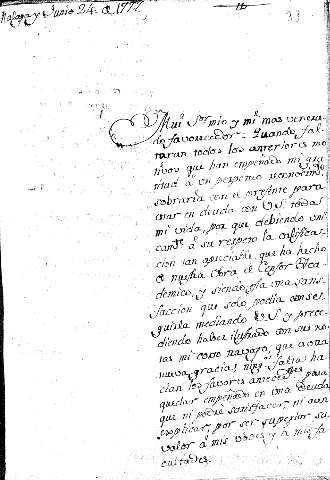 Malaga y Junio 24. de 1777.
33
Mui Sor mio y mi mas venera
do favorecedor. Quando fal
taran todos los anteriores mo
tivos que han empeñado mi gra
titud à un perpetuo reconocim.to
sobraria con el presente para
estar en deuda con V.S. todas
mi vida, por que debiendo uni
cam.te à su respeto la califica
cion tan apreciable, que ha hecho
de nuestra Obra el Censor Aca
demico, y siendo esta una satis
faccion que solo podia conse
guirla mediando V.S y prece
diendo haber ilustrado con sus no
tas mi corto travajo, que à otra
nueva gracia; ning.a falta ha
cian los favores antecedentes para
quedar empeñado en una deuda
que ni podré satisfacer, ni aun
explicar, por ser superior su
valor à mis voces y à mis fa
cultades.